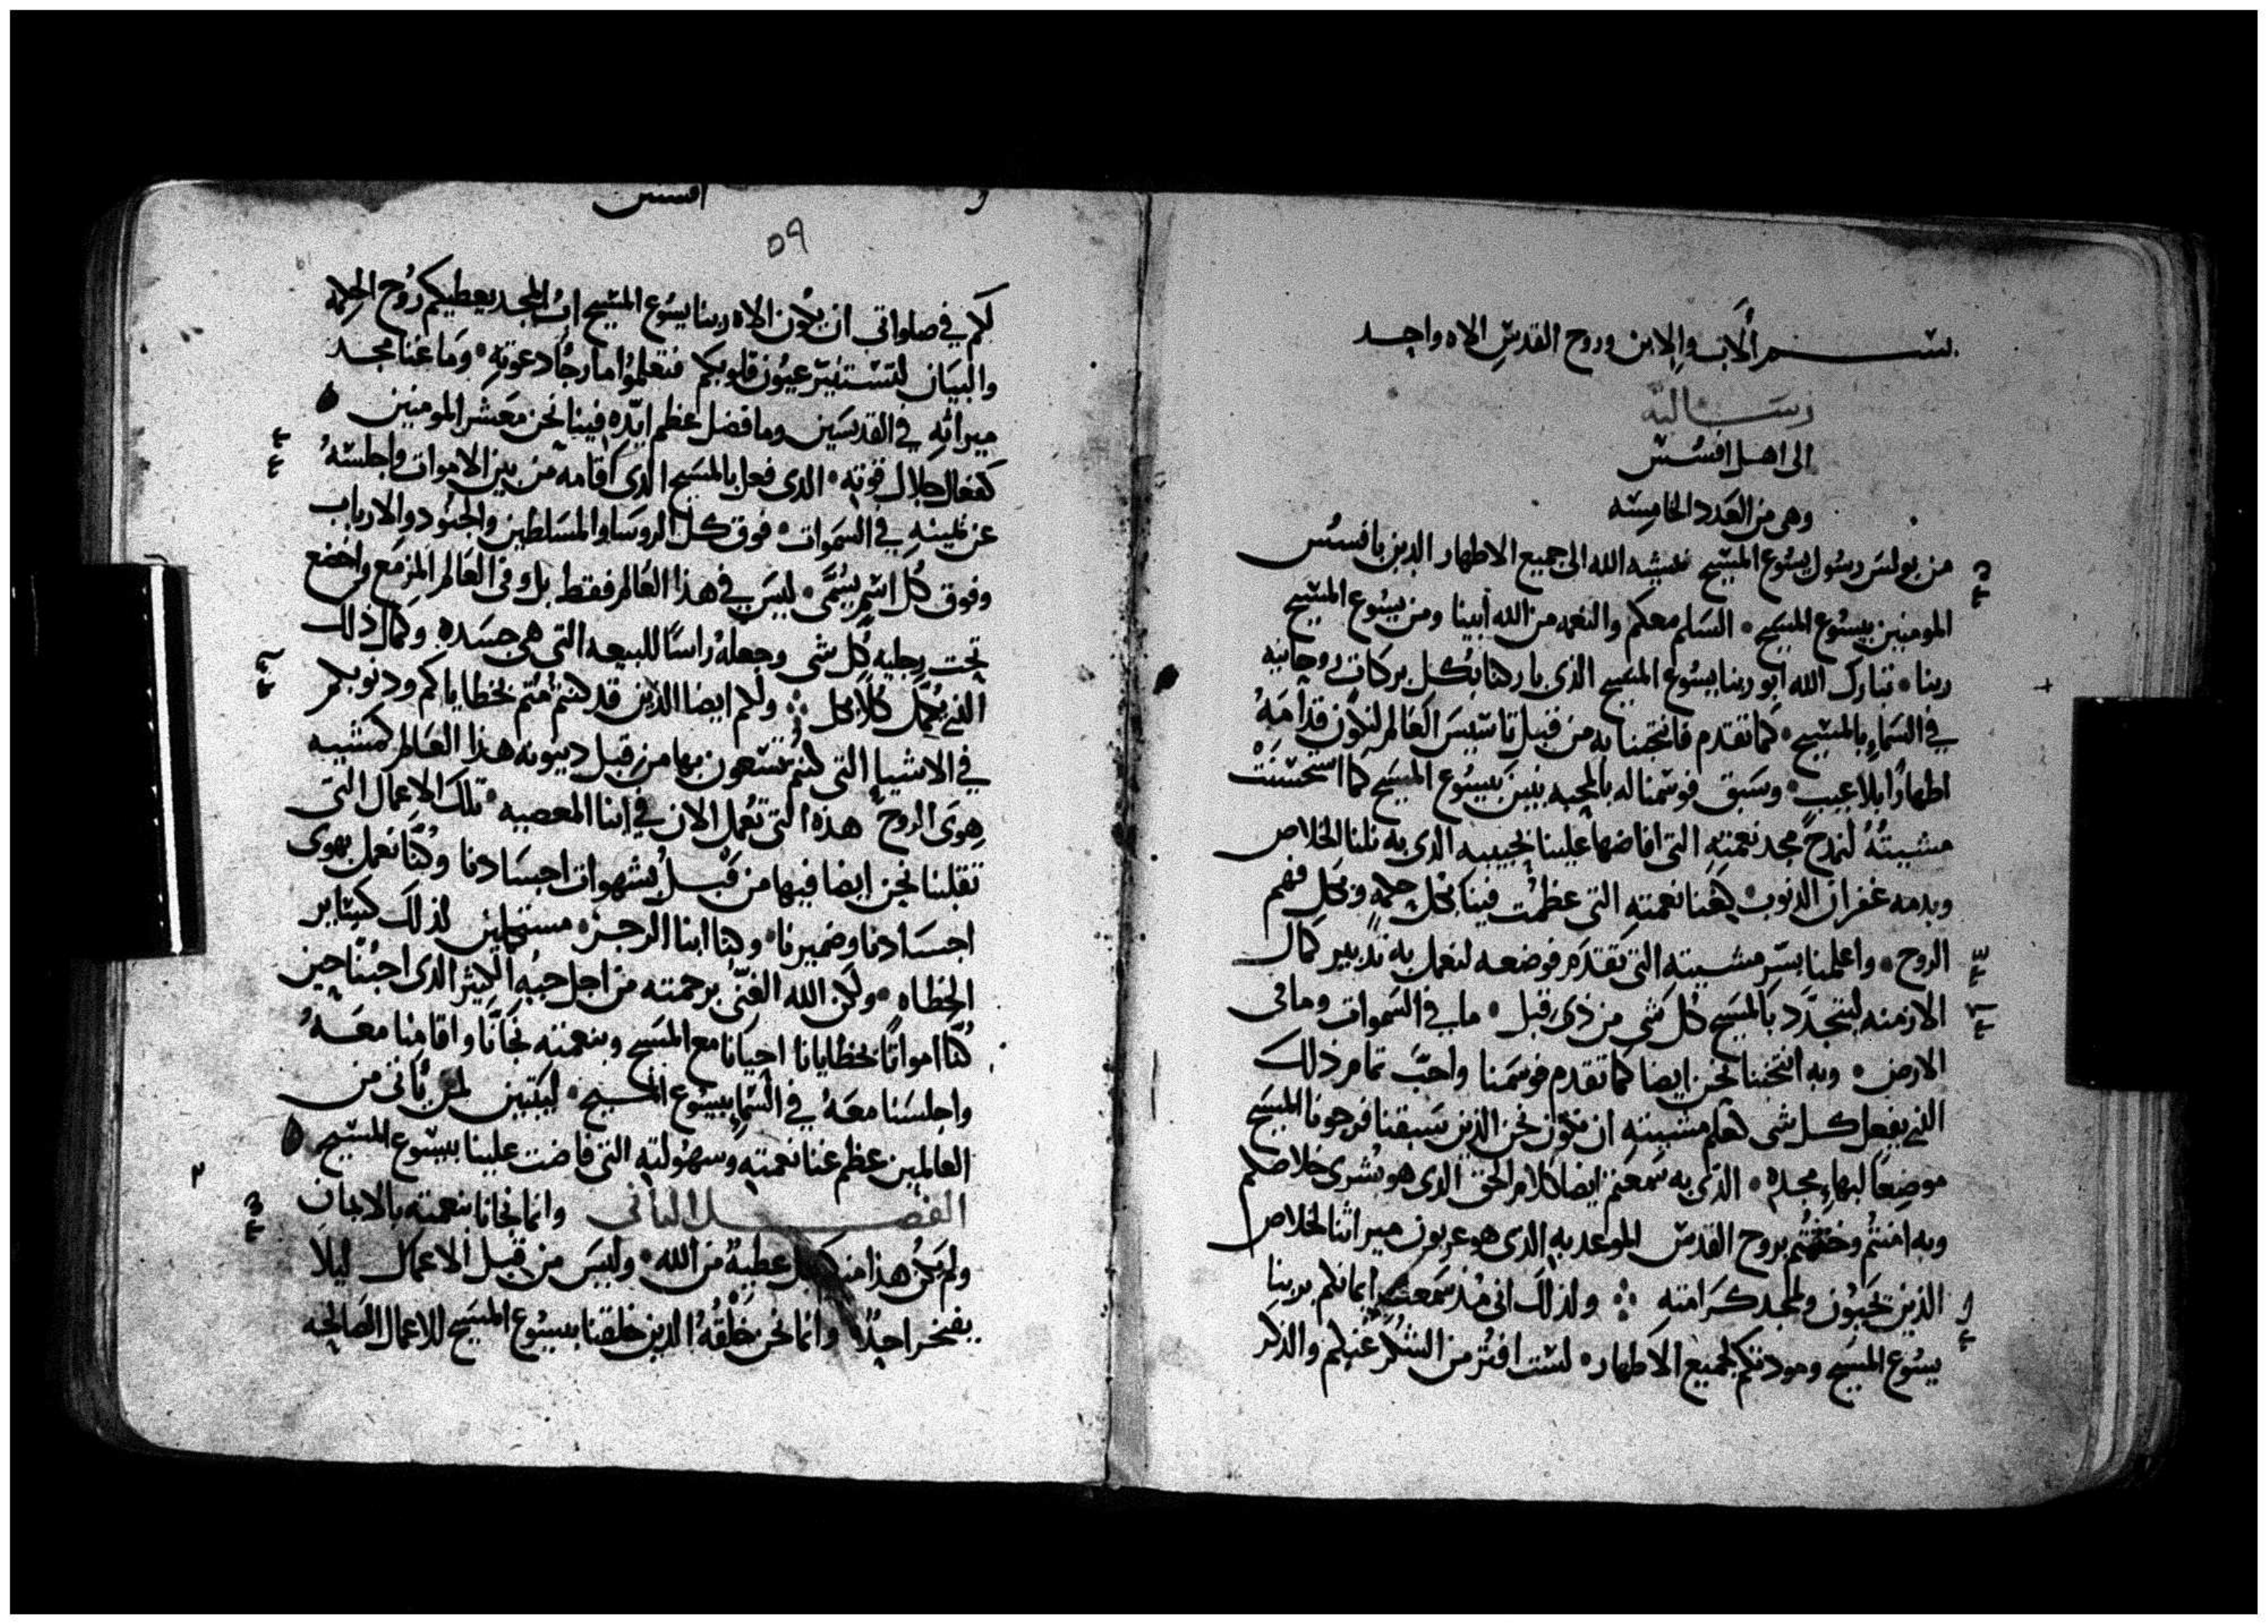 بسم الاب والابن وروح القدس الاه واحد
رسالة
الى اهل افسس
وهي من العدد الخامسه
من بولس رسول يسوع المسيح بمشيه الله الى جميع الاطهار الدين بافسس
المومنين بيسوع المسيح السلم معكم والنعمه من الله ابينا ومن يسوع المسيح
ربنا تبارك الله ابو ربنا يسوع المسيح الذى باركنا بكل بركات روحانيه
في السماء بالمسيح كما تقدم فانتخبنا به من قبل تاسيس العالم لنكون قدامه
اطهارا بلا عيب وسبق فوسمنا له بالمحبه بنين بيسوع المسيح كما استحسنت
مشييته لنمدح مجد نعمته التى افاضها علينا بحبيبه الدى به نلنا الخلاص
وبدمه غفران الدنوب كغنا نعمته التى عظمت فينا بكل حكمه وبكل فهم
الروح واعلمنا بسر مشييته التى تقدم فوضعه ليعمل به تدبير كمال
الازمنه ليتجدد بالمسيح كل شي من ذى قبل ما في السموات وما فى
الارض وبه انتخبنا نحن ايضا كما تقدم فوسمنا واحب تمام ذلك
الذي يفعل كل شى كعلم مشييته ان نكون نحن الذين سبقنا فرجونا المسيح
موضعا لبهاء مجده الذى به سمعتم ايضا كلام الحق الدى هو بشرى خلاصكم
وبه امنتم وختمتم بروح القدس الموعد به الدى هو عربون ميراثنا لخلاص
الذين يحيون ولمجد كرامته ولذلك انى منذ سمعت ايمانكم بربنا
يسوع المسيح ومودتكم لجميع الاطهار لست افتر من الشكر عنكم والذكر
افسس
٥٩
لكم في صلواتى ان يكون الاه ربنا يسوع المسيح اب المجد يعطيكم روح الحكمه
والبيان لتستنير عيون قلوبكم فتعلموا ما رجا دعوته وما غنا مجد
ميراثه في القديسين وما فضل عظم ايده فينا نحن معشر المومنين
كفعال جلال قوته الدى فعل بالمسيح الذى اقامه من بين الاموات واجلسه
عن يمينه في السموات فوق كل الروسا والمسلطين والجنود والارباب
وفوق كل اسم يسمى ليس في هذا العالم فقط بل وفى العالم المزمع واخضع
تحت رجليه كل شي وجعله راسا للبيعه التى هى جسده وكمال ذلك
الذي يكمل كلا بكل ولكم ايضا الذين قد كنتم متم بخطاياكم ودنوبكم
في الاشيا التى كنتم تسعون بها من قبل دينونه هذا العالم كمشيه
هوى الروح هذه التى تعمل الان في ابنا المعصيه تلك الاعمال التى
تقلبنا نحن ايضا فيها من قبل بشهوات اجسادنا وكنا نعمل بهوى
اجسادنا وضميرنا وكنا ابنا الرجز مستكملين لذلك كساير
الخطاه ولكن الله الغنى برحمته من اجل حبه الكثير الذى احبنا حين
كنا امواتا بخطايانا احيانا مع المسيح وبنعمته نجانا واقامنا معه
واجلسنا معه في السما بيسوع المسيح ليتبين لمن ياتى من
العالمين عظم غنا نعمته وسهولته التى فاضت علينا بيسوع المسيح
الفصل الثانى وانما نجانا بنعمته بالايمان
ولم يكن هذا منكم بل عطية من الله وليس من قبل الاعمال ليلا
يفتخر احد وانما نحن خلقه الدين خلقنا بيسوع المسيح للاعمال الصالحه